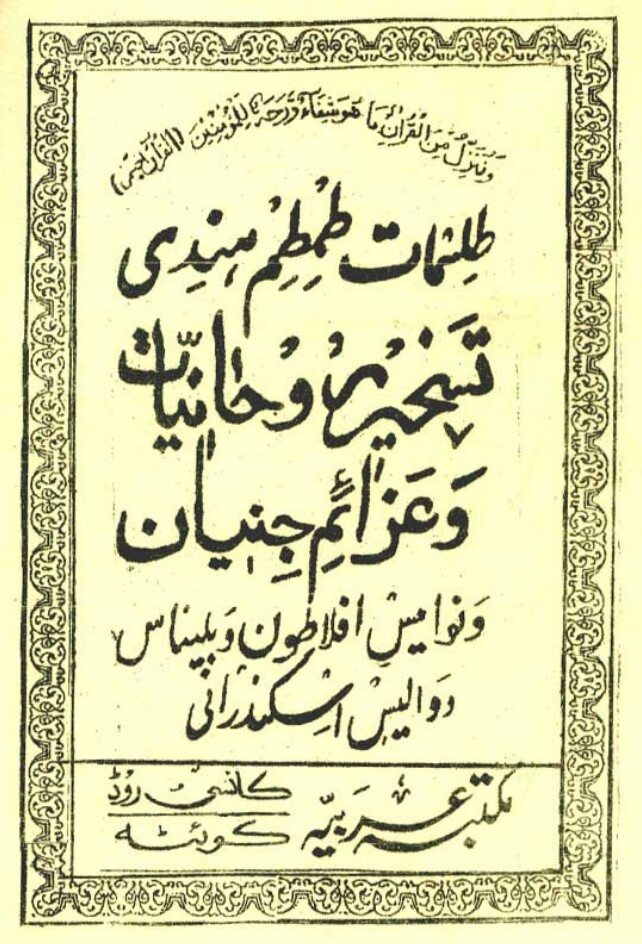 وَنُنَزِّلُ مِنَ الْقُرْاٰنِ مَا هُوَ شِفَآءٌ وَّرَحْمَةٌ لِّلْمُؤْمِنِيْنَ (القرآن
طِلِسْمَات طِمْطِمْ ہِندِی
تَسْخِيرِ رُوْحَانِيَّات
وَعَزَائِمِ جِنِيان
وَنواميسِ افلاطون وَبليناس
دواليس اِسْكندرانى
مکتبہ عَرَبِیّہ
کانسی روڈ
کوئٹہ